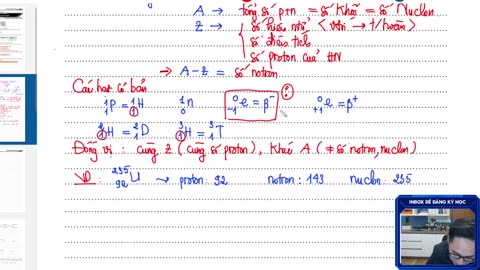 A → tổng số p+n = số khối = số Nuclon
Z → số hiệu ng.tử < vị trí → t/hoàn >
số điện tích
số proton của HN
⇒ A-Z = số notron
Các hạt cơ bản
¹₁P = ¹₁H ¹₀n ⁰₋₁e = β⁻ ! ⁰₊₁e = β⁺
²₁H = ²₁D ³₁H = ³₁T
Đồng vị : cùng Z (cùng số proton), Khác A (≠ số notron, nuclon)
VD: ²³⁵₉₂U → proton: 92 notron: 143 nuclon: 235
INBOX ĐỂ ĐĂNG KÝ HỌC